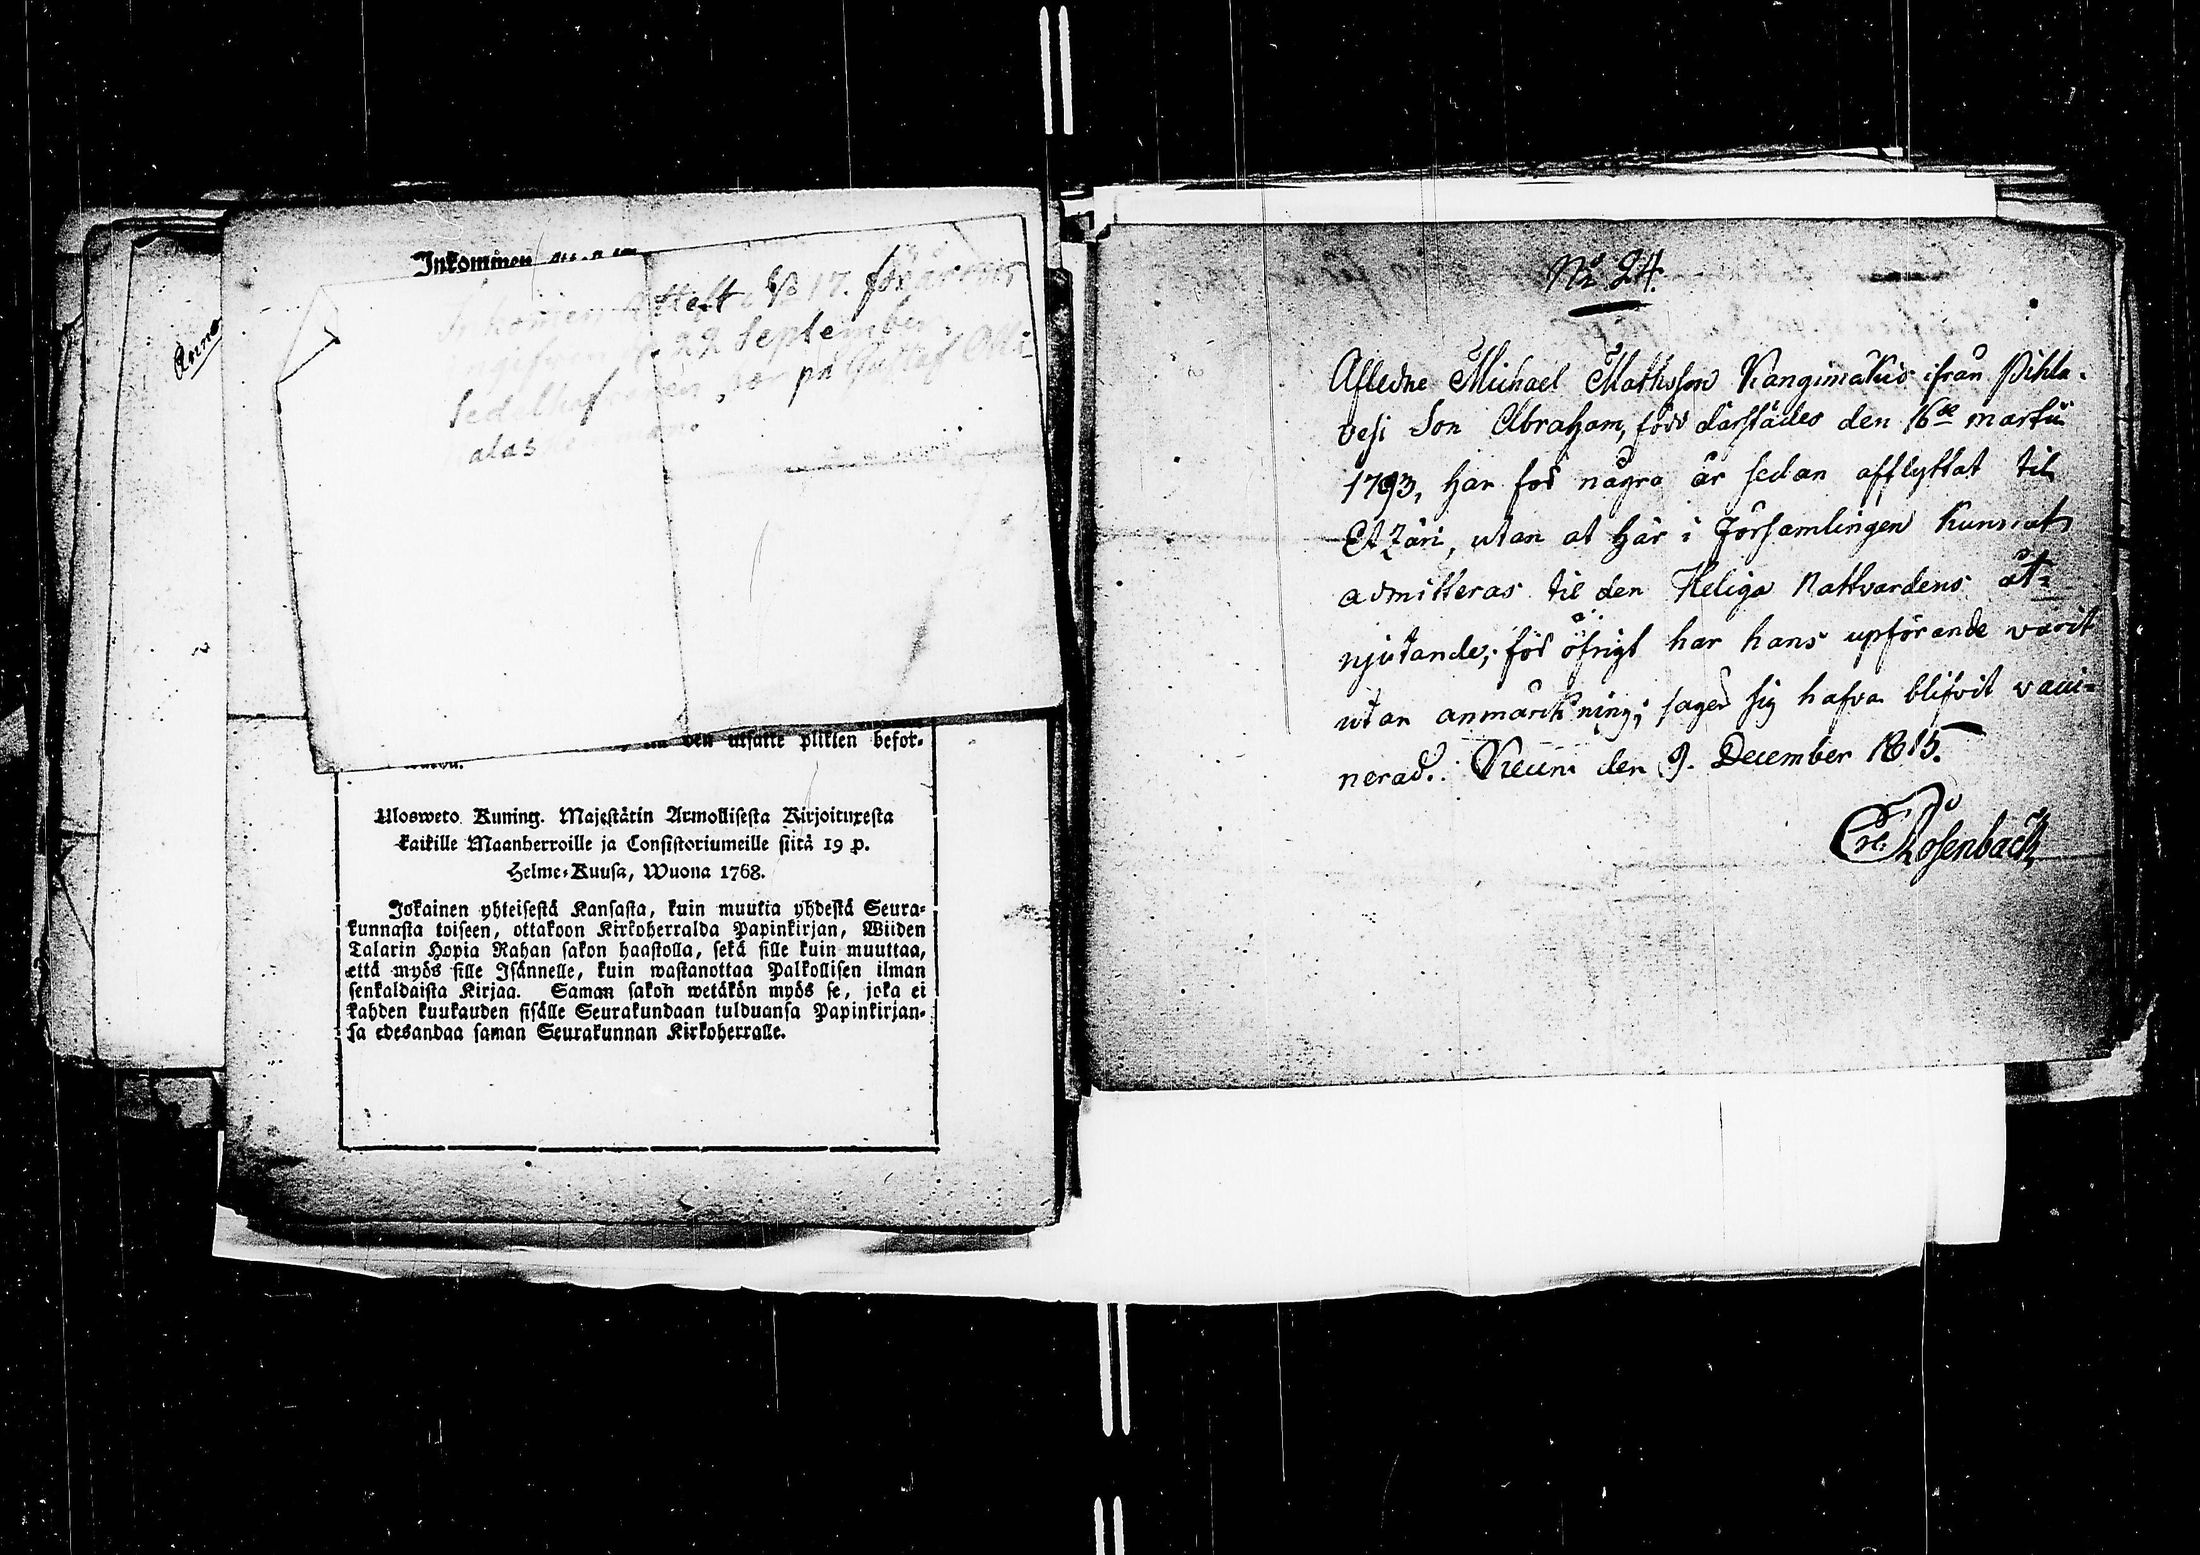 Anno
Inkommen
Attest N:o 17. för år 1815
22 September
Sedelhafvaren, har på Gustaf Olli-
alas
den utsatte plikten befor-
Ulosweto Kuning. Majestätin Armollisesta Kirjoituxesta
kaikille Maanherroille ja Consistoriumeille siitä 19 p.
Helme-Kuusa, Wuona 1768.
Jokainen yhteisestä Kansasta, kuin muutta yhdestä Seura-
kunnasta toiseen, ottakoon Kirkoherralda Papinkirjan, Wiiden
Talarin Hopia Rahan sakon haastolla, sekä sille kuin muuttaa,
että myös sille Isännelle, kuin wastanottaa Palkollisen ilman
senkaldaista Kirjaa. Saman sakon wetäkön myös se, joka ei
kahden kuukauden sisälle Seurakundaan tulduansa Papinkirjan-
sa edesandaa saman Seurakunnan Kirkoherralle.
No 24.
Afledne Michael Mathsson Kangimäkis ifrån Pihla-
vesi Son Abraham, född därstädes den 16de martii
1793, har för några år sedan afflyttat til
Etzäri, utan at här i Församlingen kunnat
admitteras til den Heliga Nattvardens åt-
njutande; för öfrigt har hans upförande varit
utan anmärkning; säger sig hafva blifvit vacci-
nerad. Keuru den 9. December 1815.
Er: Rosenback